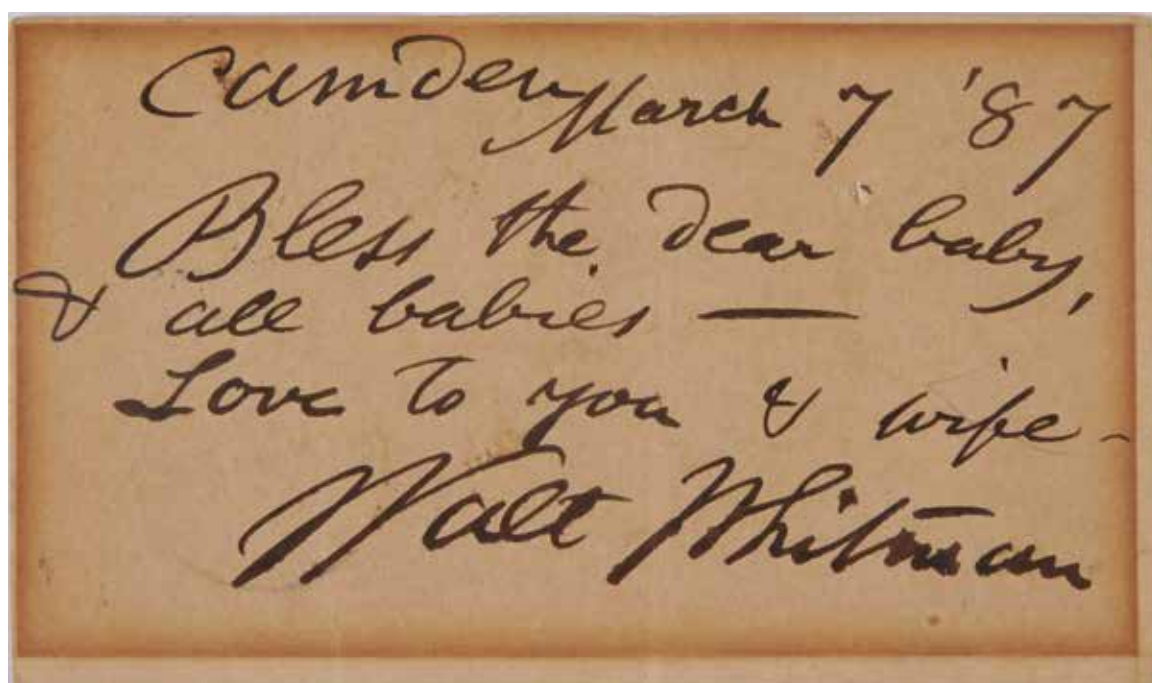 Camden March 7 '87
Bless the dear baby,
& all babies —
Love to you & wife –
Walt Whitman